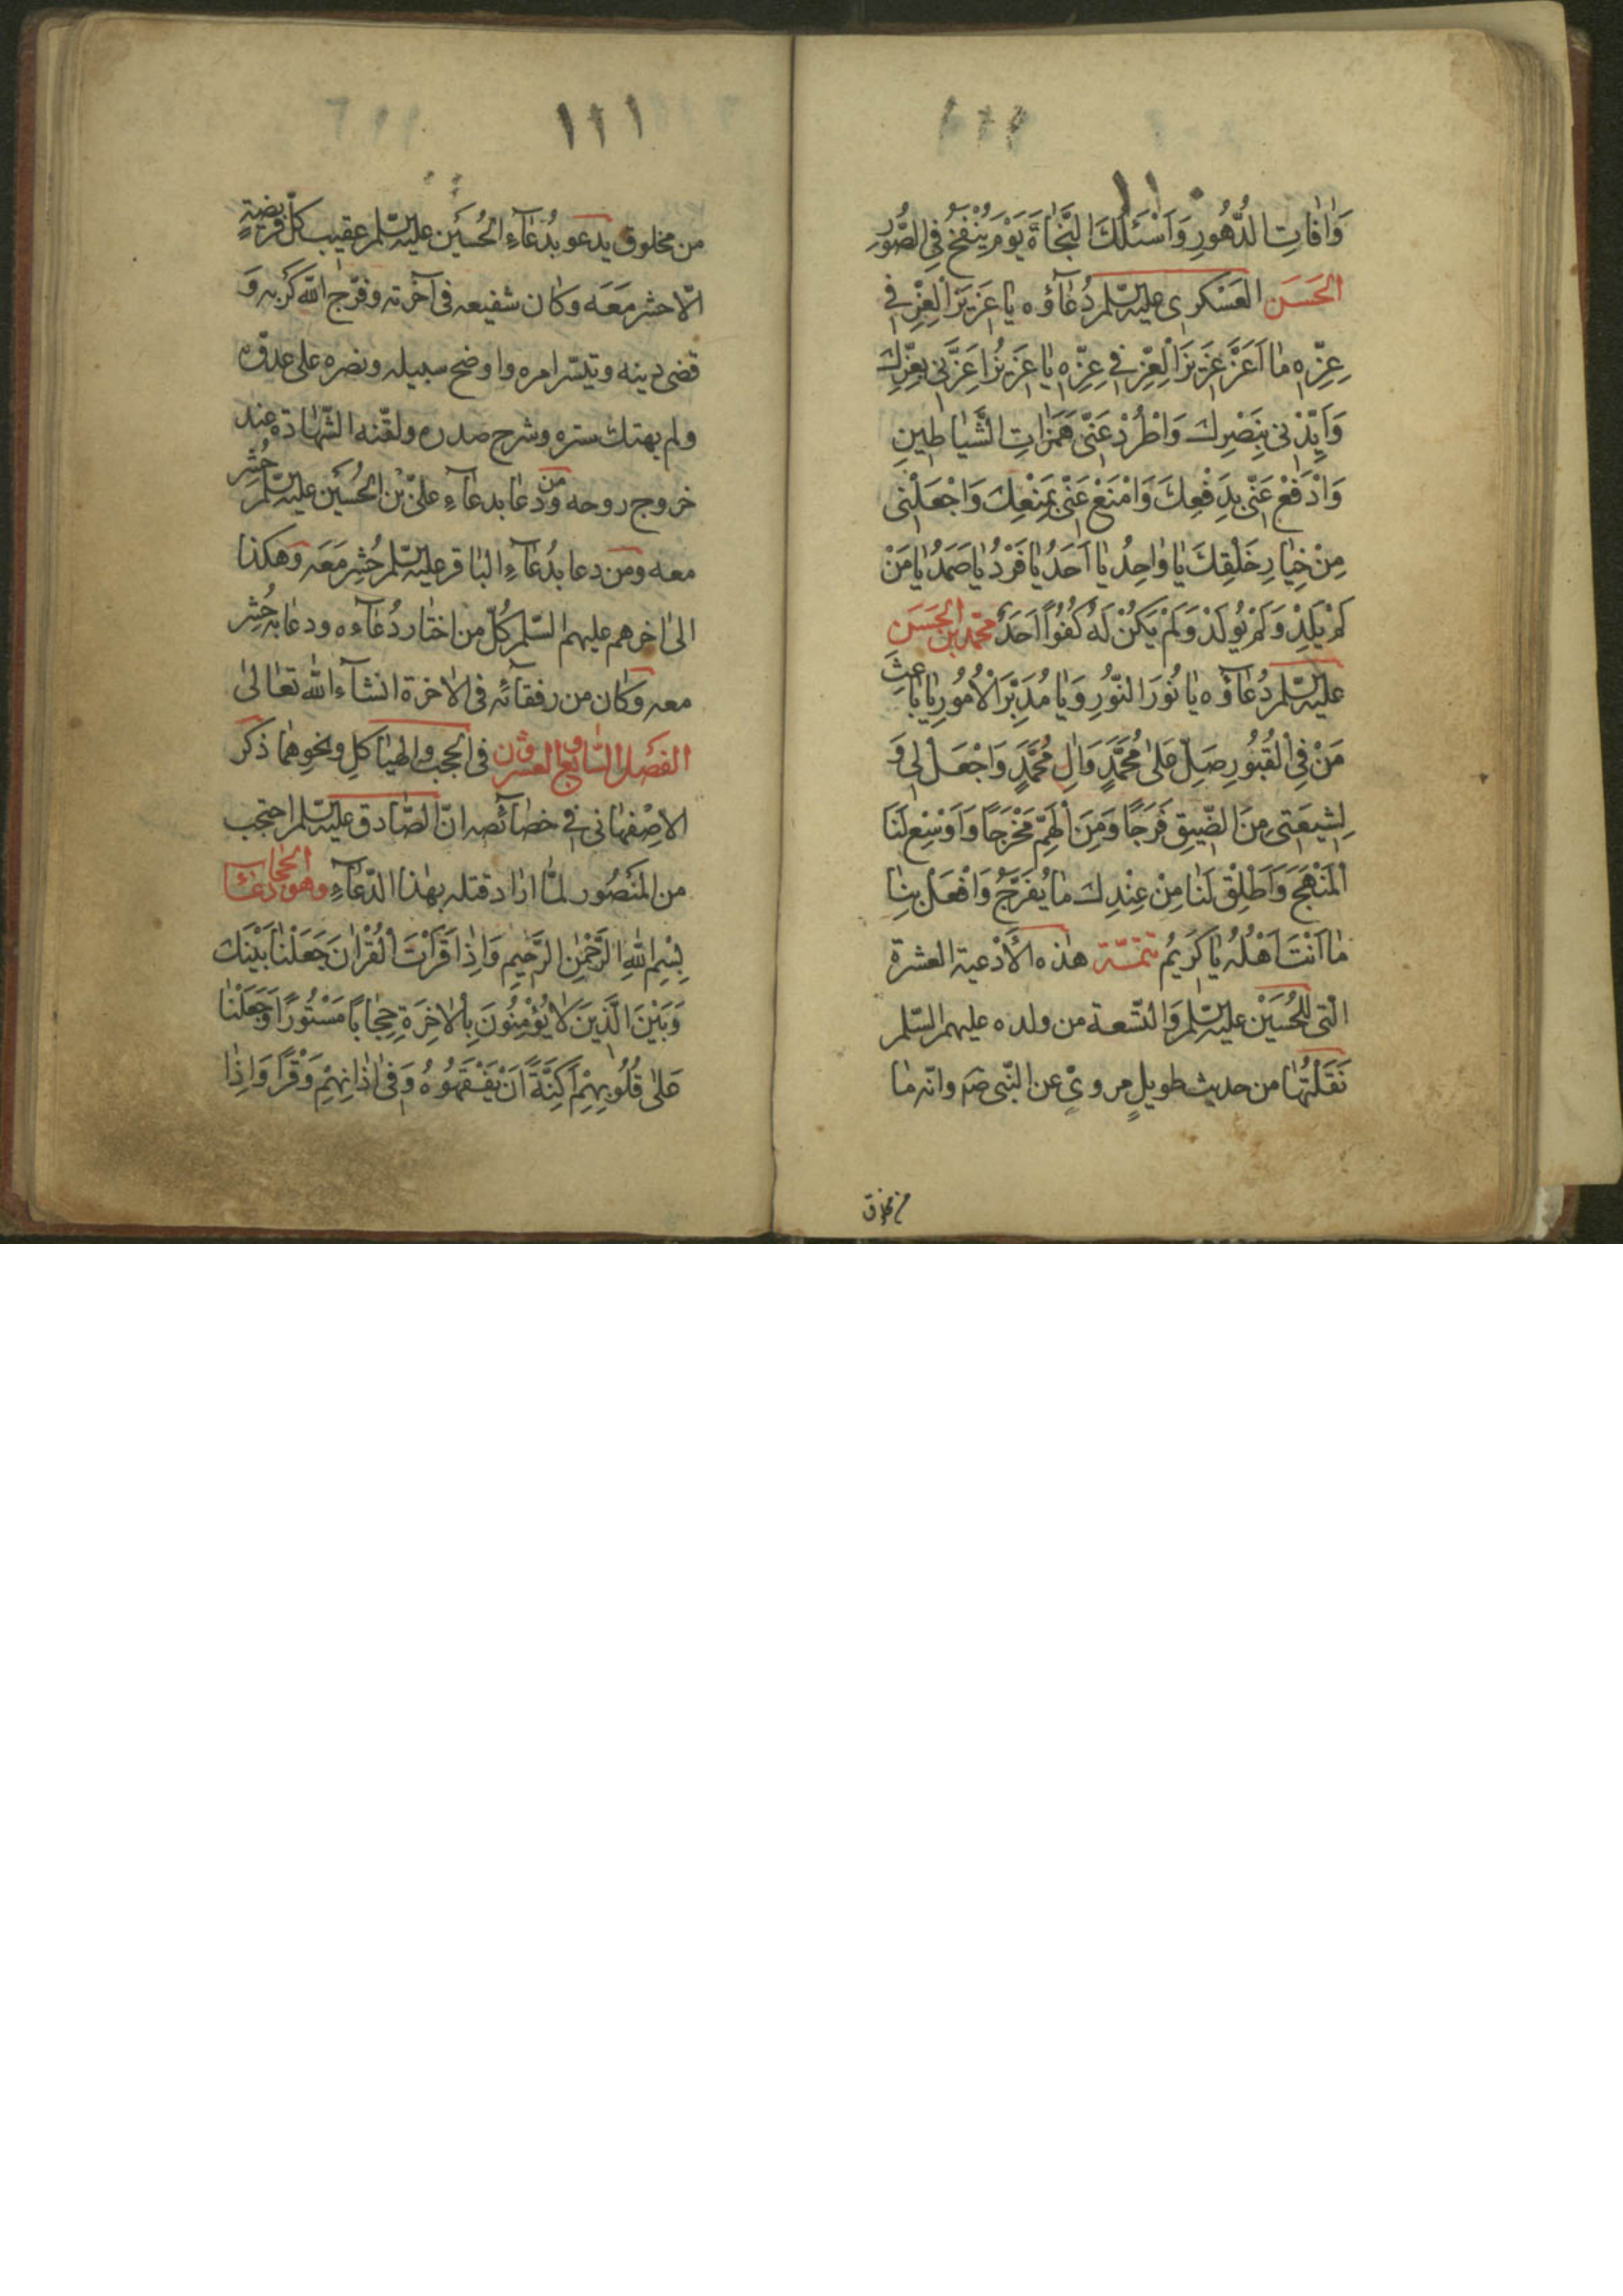 ١١٠
وَاٰفَاتِ الدُّهُورِ وَاَسْئَلُكَ النَّجَاةَ يَوْمَ يُنْفَخُ فِي الصُّوْرِ
الحَسَن العَسْكرى عليه السّلم دُعَاؤه يا عَزيزَ الْعِزِّ فِي
عِزِّه مٰا اَعَزَّ عَزِيزَ الْعِزِّ فِي عِزِّه يٰا عَزِيْزُ اَعِزَّنِي بِعِزِّكَ
وَاَيِّدْنِي بِنَصْرِكَ وَاطْرُدْ عَنِّي هَمَزٰاتِ الشَّيٰاطِينِ
وَادْفَعْ عَنِّي بِدَفْعِكَ وَامْنَعْ عَنِّي بِمَنْعِكَ وَاجْعَلْنِي
مِنْ خِيٰارِ خَلْقِكَ يٰا وٰاحِدُ يٰا اَحَدُ يٰا فَرْدُ يٰا صَمَدُ يٰا مَنْ
لَمْ يَلِدْ وَلَمْ يُولَدْ وَلَمْ يَكُنْ لَهُ كُفُوًا اَحَدٌ محمّد بن الحَسَن
عليه السّلم دُعَاؤه يا نُورَ النُّورِ وَيٰا مُدَبِّرَ الْاُمُورِ يٰا بٰاعِثَ
مَنْ فِي الْقُبُورِ صَلِّ عَلىٰ مُحَمَّدٍ وَاٰلِ مُحَمَّدٍ وَاجْعَلْ لِي وَ
لِشِيعَتِي مِنَ الضِّيقِ فَرَجًا وَمِنَ الْهَمِّ مَخْرَجًا وَاَوْسِعْ لَنَا
الْمَنْهَجَ وَاَطْلِقْ لَنٰا مِنْ عِنْدِكَ مٰا يُفَرِّجُ وَافْعَلْ بِنٰا
مٰا اَنْتَ اَهْلُهُ يٰا كَرِيمُ تتمّة هٰذه الأدْعية العشرة
الّتى للحُسَيْن عليه السّلم وَالتّسعة من ولده عليهم السّلم
نَقَلْتُهٰا من حديث طويلٍ مروىٍّ عن النّبى صم وانّه مٰا
من مخلوق
١١١
من مخلوق يدعو بدُعٰاءِ الحُسَين عليه السّلم عقيب كلّ فريضةٍ
الّا حشر مَعَه وكان شفيعه فى آخرته وفرّج اللّه كَرْبه وَ
قضى دينه ويسّر امره واوضح سبيله ونصره على عدوّه
ولم يهتك ستره وشرح صدره ولقّنه الشّهادة عند
خروج روحه ومن دعا بدعاءِ علىّ بْن الحُسَيْن عليه السّلم حُشِر
معه ومن دعا بدُعٰاءِ البٰاقر عليه السّلم حُشِر مَعَه وهكذا
الىٰ اخرهم عليهم السّلم كُلّ من اختار دُعٰاءه ودعٰا به حُشِر
معه وكان من رفقائه فى الاخرة انشآء اللّه تعٰالىٰ
الفَصْل السّابع والعشرون فى الحجب والهيٰاكلِ ونحوِهمٰا ذكر
الاصْفهانى فى خصائصه انّ الصّادق عليه السّلم احتجب
من المَنْصُور لمّا ارٰاد قتله بهٰذا الدّعاءِ وهو دعٰاء الحجاب
بِسْمِ اللّٰهِ الرَّحْمٰنِ الرَّحِيمِ وَاِذَا قَرَأْتَ الْقُرْاٰنَ جَعَلْنٰا بَيْنَكَ
وَبَيْنَ الَّذِينَ لٰا يُؤْمِنُونَ بِالْاٰخِرَةِ حِجٰابًا مَسْتُورًا وَجَعَلْنٰا
عَلىٰ قُلُوبِهِمْ اَكِنَّةً اَنْ يَفْقَهُوهُ وَفِي اٰذٰانِهِمْ وَقْرًا وَاِذٰا